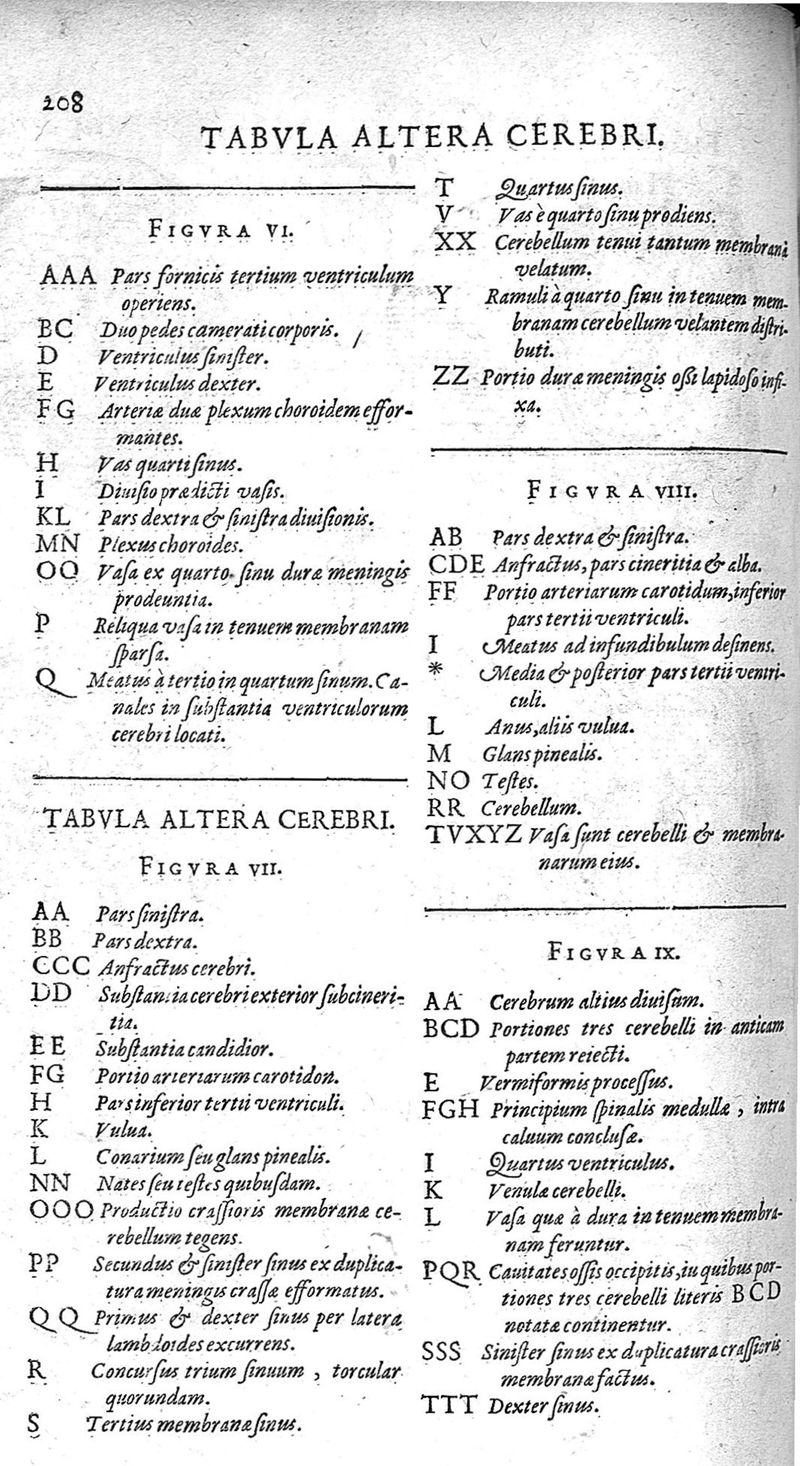 208
TABVLA ALTERA CEREBRI.
FIGVRA VI.
AAA Pars fornicis tertium ventriculum
operiens.
BC Duo pedes camerati corporis.
D Ventriculus ſiniſter.
E Ventriculus dexter.
FG Arteriæ duæ plexum choroidem effor-
mantes.
H Vas quarti ſinus.
I Diuiſio prædicti vaſis.
KL Pars dextra & ſiniſtra diuiſionis.
MN Plexus choroides.
OO Vaſa ex quarto ſinu duræ meningis
prodeuntia.
P Reliqua vaſa in tenuem membranam
ſparſa.
Q Meatus à tertio in quartum ſinum. Ca-
nales in ſubſtantia ventriculorum
cerebri locati.
TABVLA ALTERA CEREBRI.
FIGVRA VII.
AA Pars ſiniſtra.
BB Pars dextra.
CCC Anfractus cerebri.
DD Subſtantia cerebri exterior ſubcineri-
tia.
EE Subſtantia candidior.
FG Portio arteriarum carotidon.
H Pars inferior tertii ventriculi.
K Vulua.
L Conarium ſeu glans pinealis.
NN Nates ſeu teſtes quibuſdam.
OOO Productio craſſioris membranæ ce-
rebellum tegens.
PP Secundus & ſiniſter ſinus ex duplica-
tura meningis craſſæ efformatus.
QQ Primus & dexter ſinus per latera
lambdoides excurrens.
R Concurſus trium ſinuum, torcular
quorundam.
S Tertius membranæ ſinus.
T Quartus ſinus.
V Vas è quarto ſinu prodiens.
XX Cerebellum tenui tantum membrana
velatum.
Y Ramuli à quarto ſinu in tenuem mem-
branam cerebellum velantem diſtri-
buti.
ZZ Portio duræ meningis oſſi lapidoſo infi-
xa.
FIGVRA VIII.
AB Pars dextra & ſiniſtra.
CDE Anfractus, pars cineritia & alba.
FF Portio arteriarum carotidum, inferior
pars tertii ventriculi.
I Meatus ad infundibulum deſinens.
* Media & poſterior pars tertii ventri-
culi.
L Anus, aliis vulua.
M Glans pinealis.
NO Teſtes.
RR Cerebellum.
TVXYZ Vaſa ſunt cerebelli & membra-
narum eius.
FIGVRA IX.
AA Cerebrum altius diuiſum.
BCD Portiones tres cerebelli in anticam
partem reiecti.
E Vermiformis proceſſus.
FGH Principium ſpinalis medullæ, intra
caluum concluſæ.
I Quartus ventriculus.
K Venulæ cerebelli.
L Vaſa quæ à dura in tenuem membra-
nam feruntur.
PQR Cauitates oſſis occipitis, in quibus por-
tiones tres cerebelli literis BCD
notatæ continentur.
SSS Siniſter ſinus ex duplicatura craſſioris
membranæ factus.
TTT Dexter ſinus.